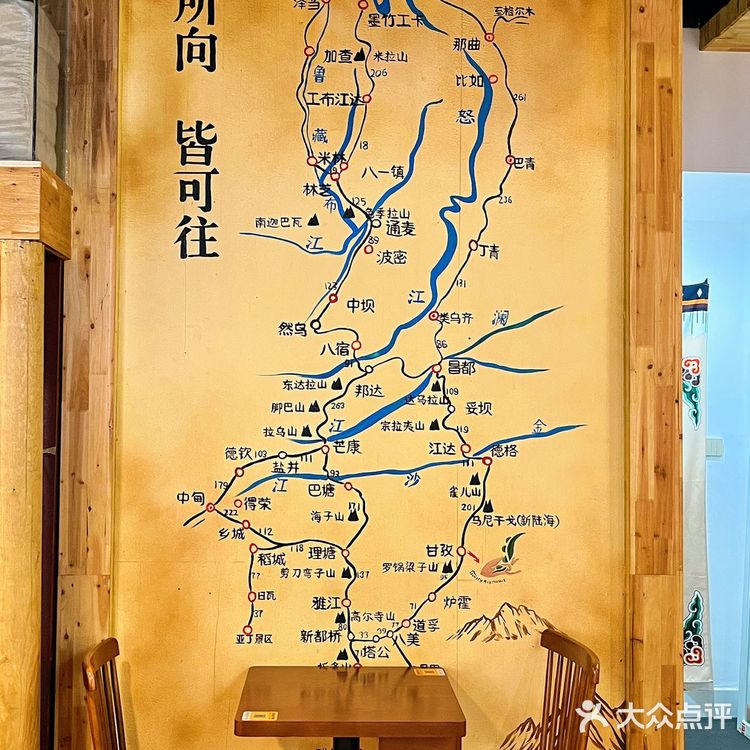 所向 皆可往
泽当
墨竹工卡
至格尔木
那曲
加查
米拉山
鲁
206
比如
工布江达
261
怒
藏
18
米林
19
八一镇
巴青
林芝
布
125
色季拉山
236
南迦巴瓦
通麦
江
89
波密
丁青
131
123
中坝
江
类乌齐
澜
然乌
86
八宿
91
昌都
邦达
东达拉山
达马拉山
109
脚巴山
263
妥坝
宗拉夷山
119
金
拉乌山
江
芒康
江达
德格
德钦
103
盐井
111
93
沙
179
江
巴塘
雀儿山
201
中甸
得荣
222
171
海子山
马尼干戈(新陆海)
乡城
112
118
甘孜
稻城
理塘
罗锅梁子山
95
77
剪刀弯子山
137
日瓦
雅江
炉霍
37
高尔寺山
71
亚丁景区
80
道孚
新都桥
33
39
77
八美
塔公
71
折多山
大众点评